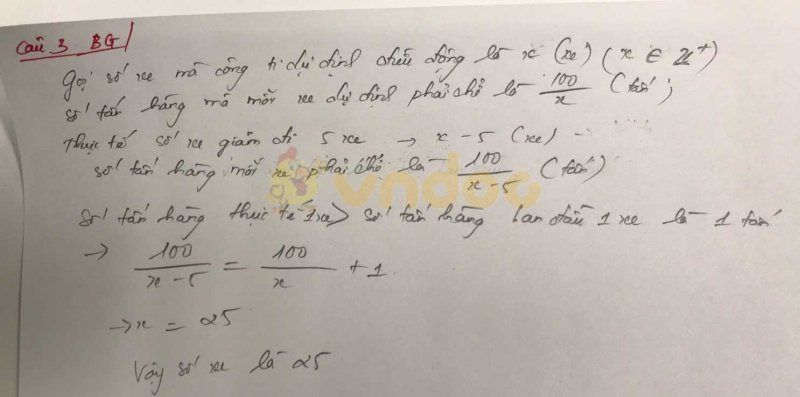 Câu 3 BG
Gọi số xe mà công ti dự định điều động là x (xe) (x ∈ Z⁺)
số tấn hàng mà mỗi xe dự định phải chở là 100/x (tấn);
Thực tế số xe giảm đi 5 xe → x - 5 (xe)
số tấn hàng mỗi xe phải chở là 100/x-5 (tấn)
vndoc
Số tấn hàng thực tế 1 xe > số tấn hàng ban đầu 1 xe là 1 tấn
→ 100/x-5 = 100/x + 1.
→ x = 25
Vậy số xe là 25